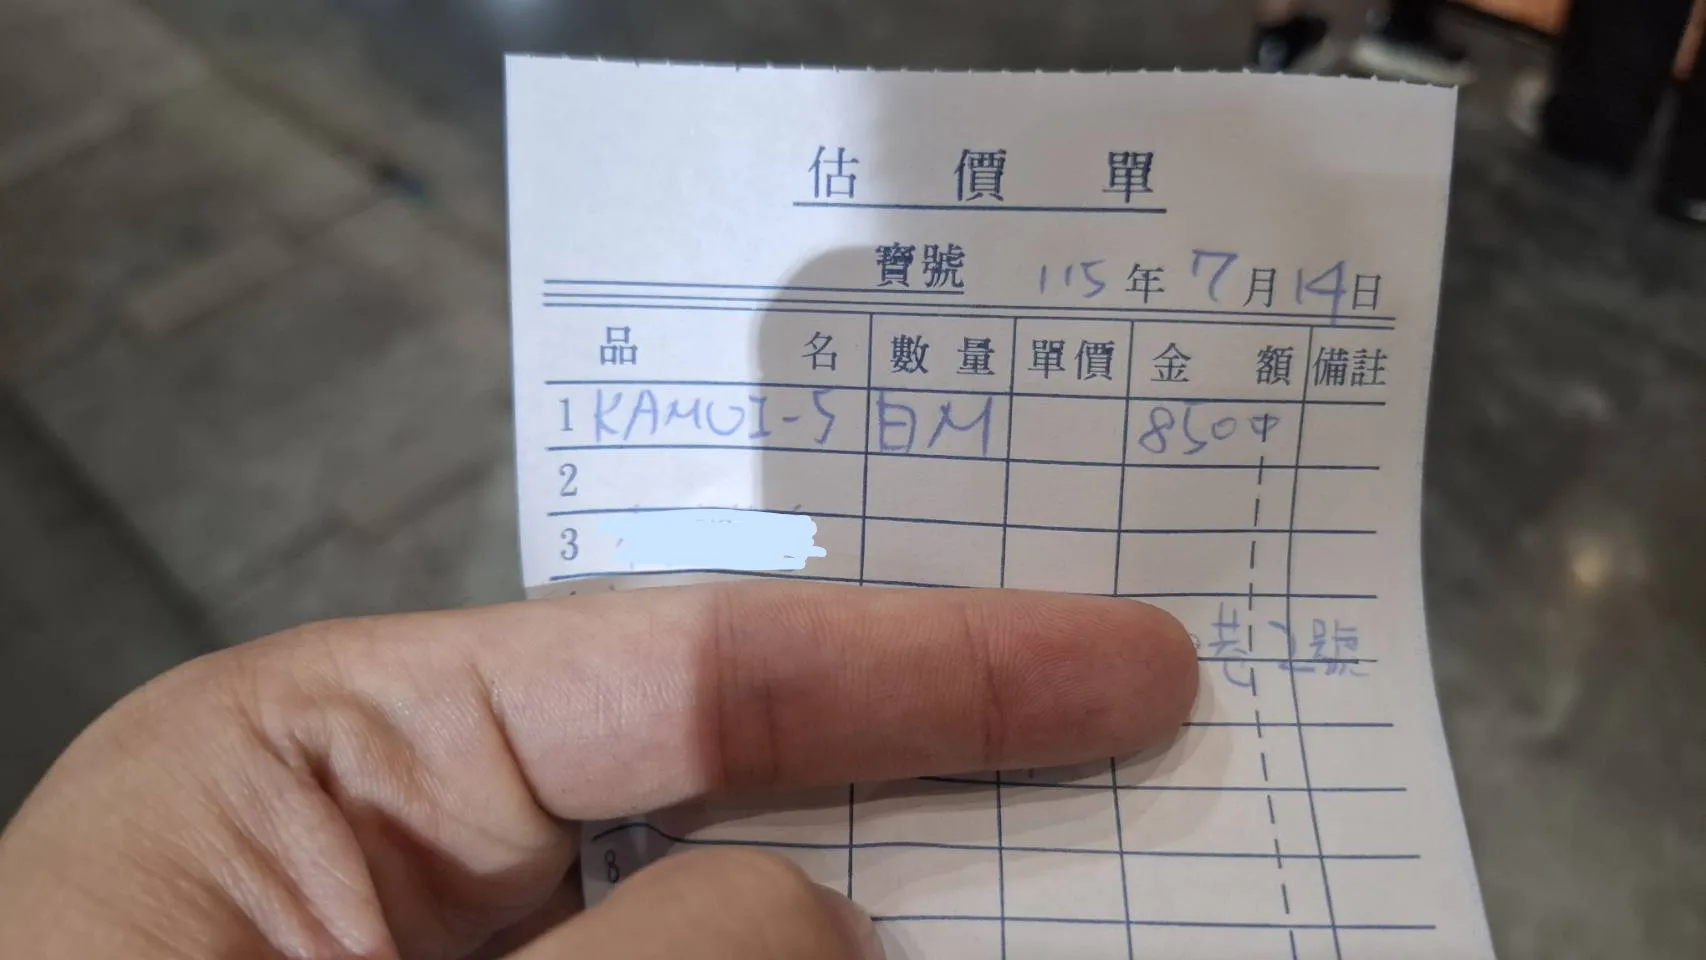 估價單
寶號 115年7月14日
品名 數量 單價 金額 備註
1 KAMUI-5 白M 8500
2
3
巷2號
8